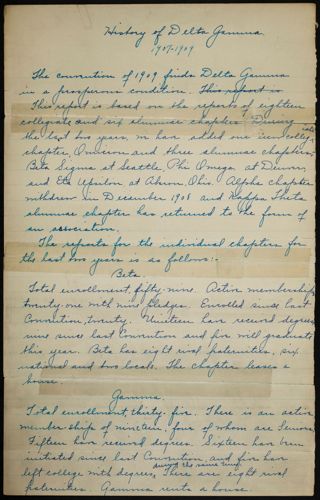 History of Delta Gamma
1907-1909
The convention of 1909 finds Delta Gamma
in a prosperous condition. This report is
This report is based on the reports of eighteen
collegiate and six alumnae chapters. During
the last two years, we have added one new colleg-
iate
chapter, Omicron and three alumnae chapters,
Beta Sigma at Seattle, Phi Omega, at Denver,
and Eta Upsilon at Akron, Ohio. Alpha chapter
withdrew in December 1908 and Kappa Theta
alumnae chapter has returned to the form of
an association.
The reports for the individual chapters for
the last two years is as follows:-
Beta.
Total enrollment, fifty-nine. Active membership
twenty-one with nine pledges. Enrolled since last
Convention, twenty. Nineteen have received degrees
nine since last Convention and five will graduate
this year. Beta has eight rival fraternities, six
national and two locals. The chapter leases a
house.
Gamma.
Total enrollment, thirty-five. There is an active
membership of nineteen, four of whom are Seniors.
Fifteen have received degrees. Sixteen have been
initiated since last Convention, and five have
during the same time
left college with degrees. There are eight rival
fraternities. Gamma rents a house.